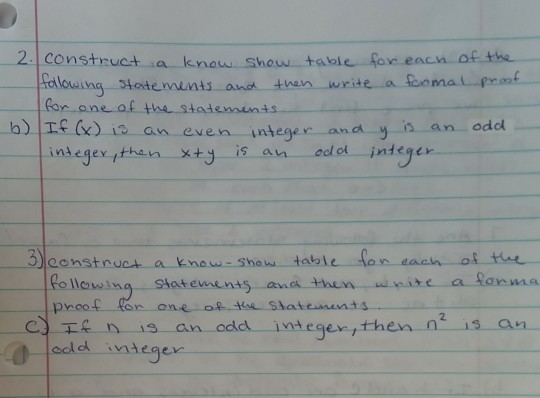 2. construct a know show table for each of the
following statements and then write a formal proof
for one of the statements
b) If (x) is an even integer and y is an odd
integer, then x+y is an odd integer
3) construct a know-show table for each of the
following statements and then write a forma
proof for one of the statements
c) If n is an odd integer, then n² is an
odd integer